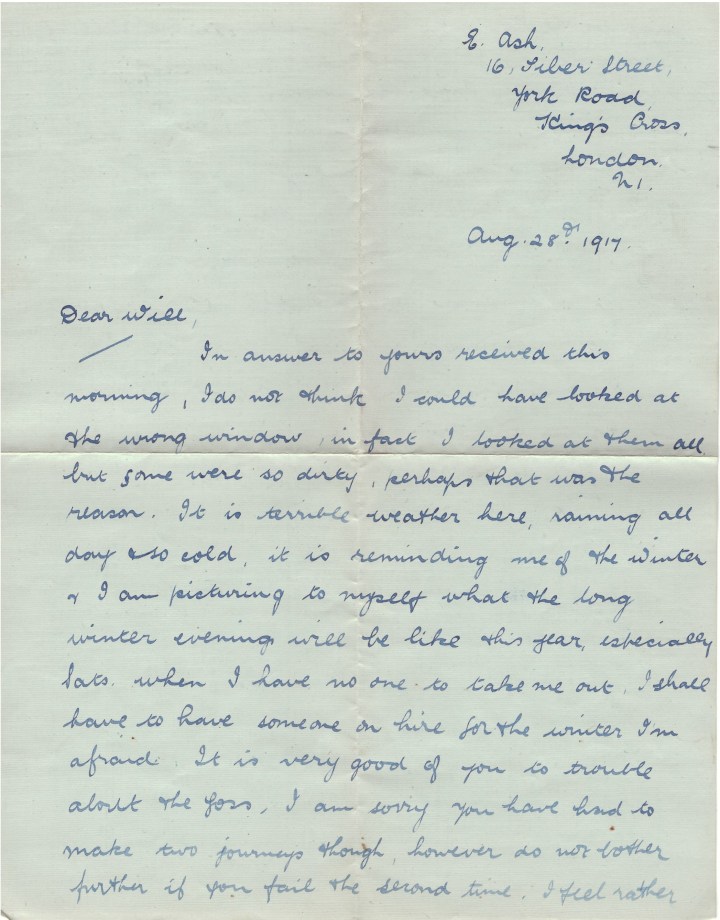 E. Ash,
16, Tiber Street,
York Road,
King's Cross,
London.
N1.
Aug. 28th. 1917.
Dear Will,
In answer to yours received this
morning, I do not think I could have looked at
the wrong window, in fact I looked at them all,
but some were so dirty, perhaps that was the
reason. It is terrible weather here, raining all
day & so cold, it is reminding me of the winter
& I am picturing to myself what the long
winter evenings will be like this year, especially
Sats. when I have no one to take me out. I shall
have to have someone on hire for the winter I'm
afraid. It is very good of you to trouble
about the foss, I am sorry you have had to
make two journeys though, however do not bother
further if you fail the second time. I feel rather